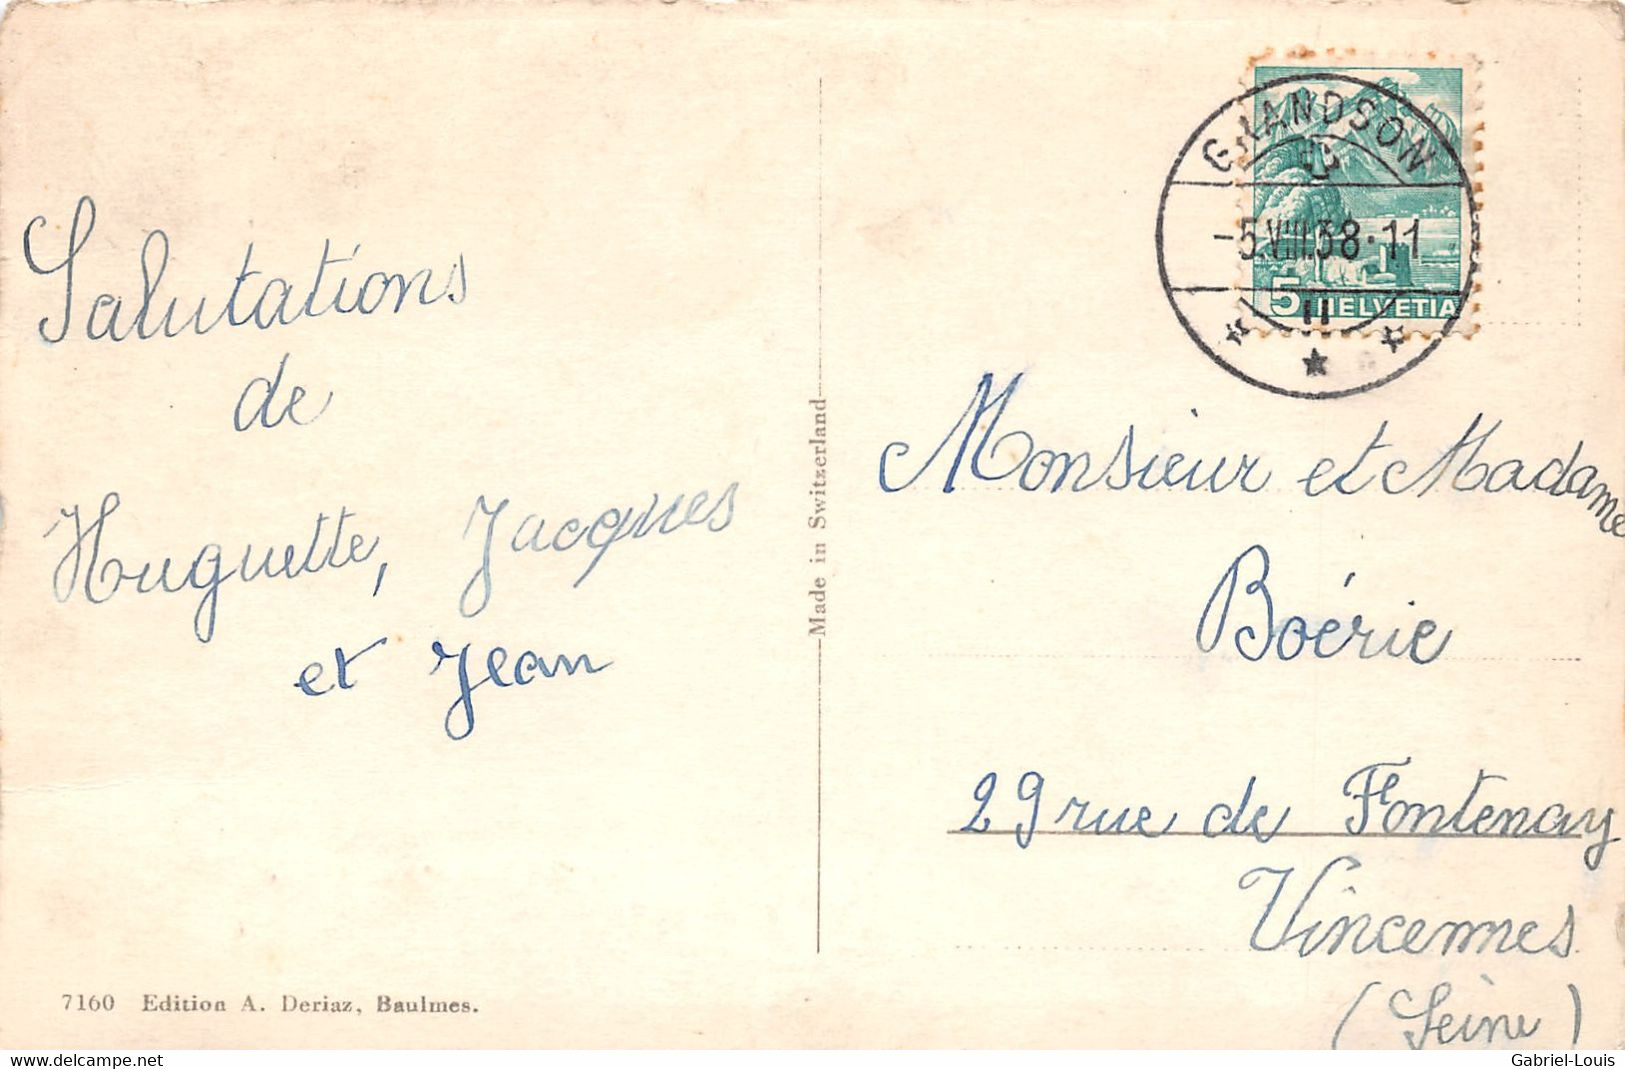 Salutations
de
Huguette, Jacques
et Jean
7160 Edition A. Deriaz, Baulmes.
Made in Switzerland
GRANDSON
-5.VIII.38·11
5 HELVETIA
Monsieur et Madame
Boérie
29 rue de Fontenay
Vincennes
(Seine)
delcampe.net
Gabriel-Louis